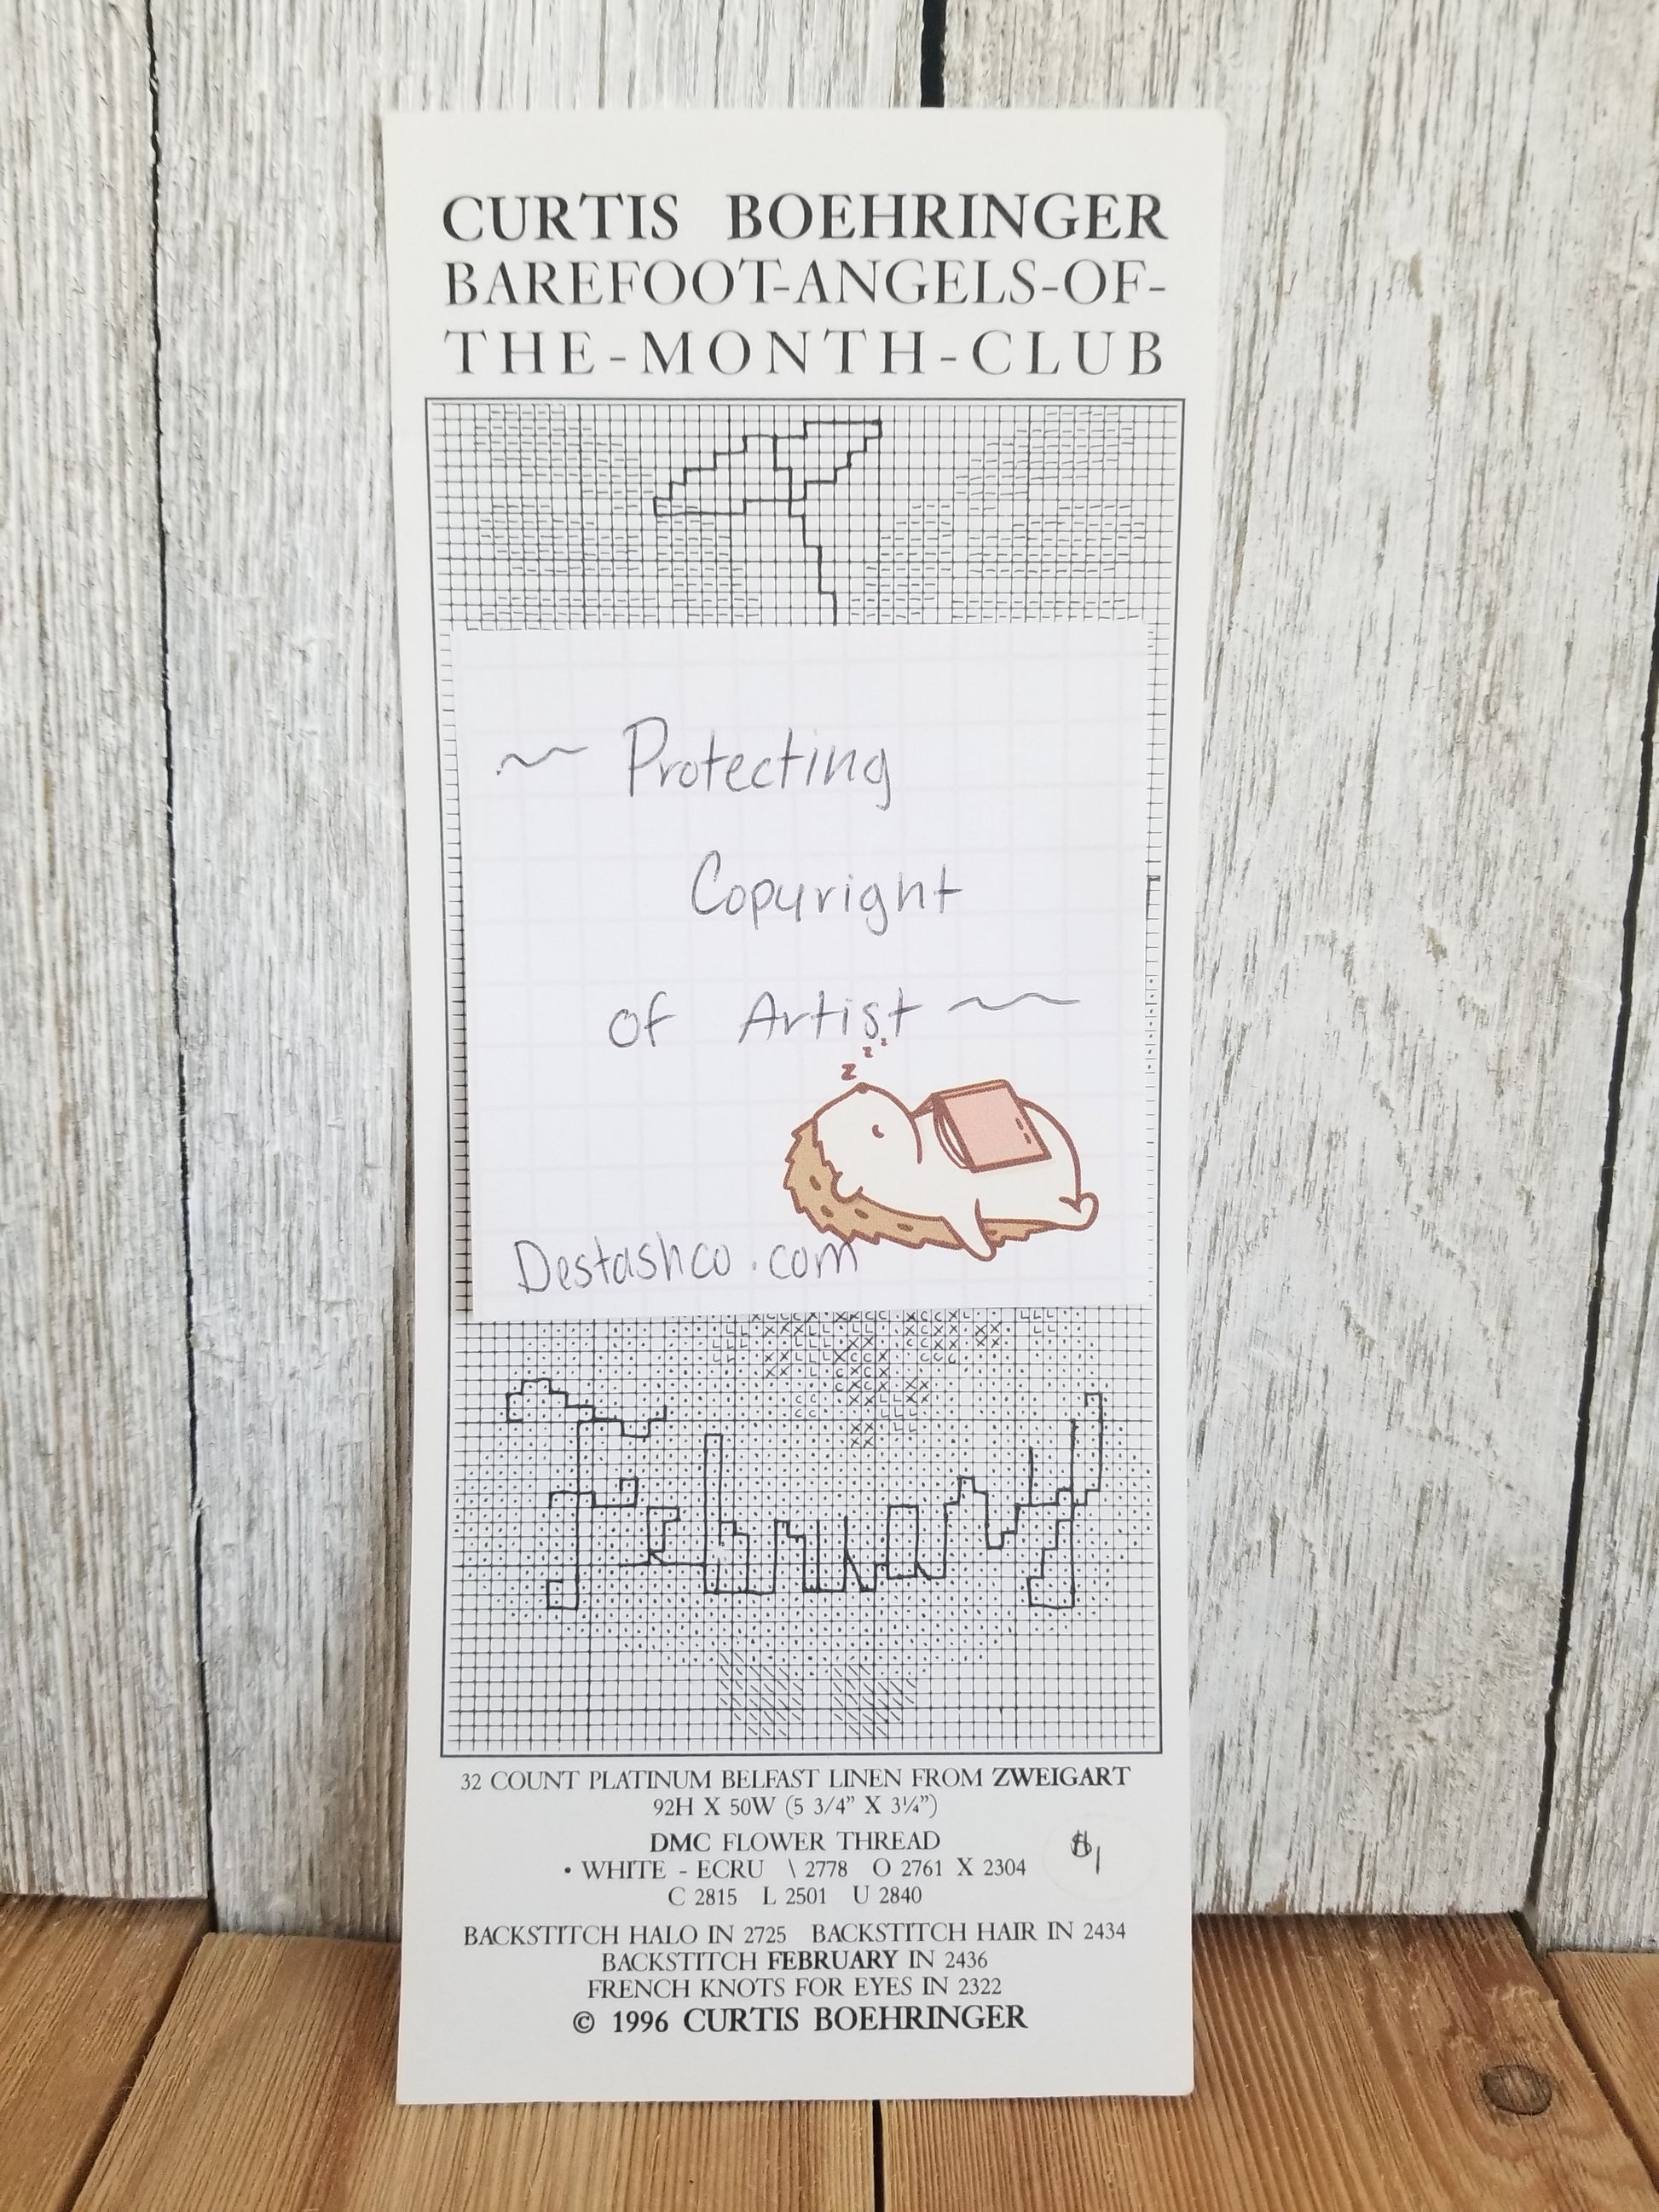 CURTIS BOEHRINGER
BAREFOOT-ANGELS-OF-
THE-MONTH-CLUB
~ Protecting
Copyright
of Artist ~
z z z
Destashco.com
February
32 COUNT PLATINUM BELFAST LINEN FROM ZWEIGART
92H X 50W (5 3/4" X 3¼")
DMC FLOWER THREAD
• WHITE - ECRU \ 2778 O 2761 X 2304
C 2815 L 2501 U 2840
$1
BACKSTITCH HALO IN 2725 BACKSTITCH HAIR IN 2434
BACKSTITCH FEBRUARY IN 2436
FRENCH KNOTS FOR EYES IN 2322
© 1996 CURTIS BOEHRINGER